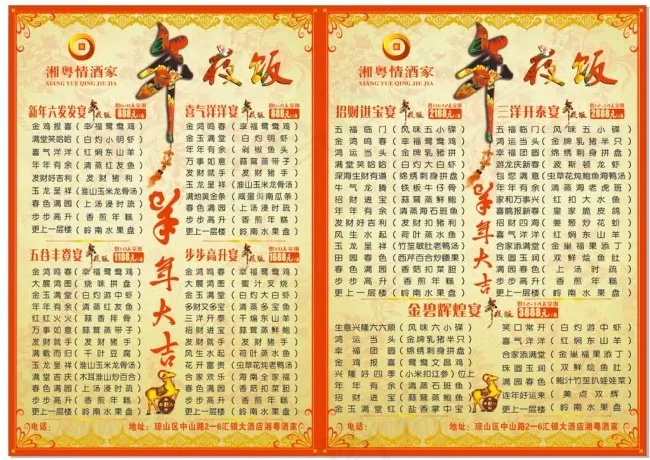 湘粤情酒家
XIANG YUE QING JIU JIA
年夜饭
新年六发发宴 年夜饭 688元/桌
金鸡报喜（幸福鸳鸯鸡）
满堂笑哈哈（白灼明虾）
喜气洋洋（红焖东山羊）
年年有余（清蒸红友鱼）
发财好吉利（发财猪利）
玉龙呈祥（淮山玉米龙骨汤）
春色满园（上汤浸时蔬）
步步高升（香煎年糕）
更上一层楼（岭南水果盘）
喜气洋洋宴 年夜饭 888元/桌
金鸿鸣春（幸福鸳鸯鸡）
金玉满堂（白灼明虾）
年年有余（剁椒鱼头）
万事如意（蒜茸蒸带子）
发财就手（发财猪手）
玉龙呈祥（淮山玉米龙骨汤）
满地黄金条（咸蛋黄南瓜条）
春色满园（上汤浸时蔬）
步步高升（香煎年糕）
更上一层楼（岭南水果盘）
五谷丰登宴 年夜饭 1188元/桌
金鸿鸣春（幸福鸳鸯鸡）
大展鸿图（烧味拼盘）
金玉满堂（白灼游中虾）
年年有余（清蒸红友鱼）
红红火火（蒜香排骨）
万事如意（蒜茸蒸带子）
发财就手（发财猪手）
满载而归（千叶豆腐）
玉龙呈祥（淮山玉米龙骨汤）
满堂吉庆（木耳淮山炒百合）
春色满园（上汤浸时蔬）
步步高升（香煎年糕）
更上一层楼（岭南水果盘）
步步高升宴 年夜饭 1688元/桌
金鸿鸣春（幸福鸳鸯鸡）
大展宏图（蜜汁叉烧）
金玉满堂（白灼大白虾）
多财又多宝（清蒸多宝鱼）
三洋开泰（干锅东山羊）
招财进宝（蒜茸蒸鲜鲍）
发财就手（发财猪手）
风生水起（荷叶蒸水鱼）
花开富贵（虫草花炖老鸭汤）
合家欢乐（海南全家福）
春色满园（香菇扣菜胆）
步步高升（香煎年糕）
更上一层楼（岭南水果盘）
羊年大吉
电话：
地址：琼山区中山路2-6汇银大酒店湘粤酒家
湘粤情酒家
XIANG YUE QING JIU JIA
年夜饭
招财进宝宴 年夜饭 2188元/桌
五福临门（风味五小碟）
鸿运当头（金牌乳猪半只）
金鸿鸣春（幸福鸳鸯鸡）
大展鸿图（锦绣刺身拼盘）
满堂笑哈哈（白灼大白虾）
深海生财有道（锦绣刺身拼盘）
牛气龙腾（铁板牛仔骨）
招财进宝（蒜茸蒸鲜鲍）
年年有余（清蒸海石斑鱼）
发财好吉利（发财猪利）
风生水起（荷叶蒸水鱼）
玉龙呈祥（竹笙螺肚老鸭汤）
田园春色（西芹百合炒腰果）
春色满园（香菇扣菜胆）
步步高升（香煎年糕）
更上一层楼（岭南水果盘）
三洋开泰宴 年夜饭 2888元/桌
五福临门（风味五小碟）
鸿运当头（金牌乳猪半只）
幸福团圆（锦绣刺身拼盘）
游龙庆新春（波斯顿龙虾）
包您满意（虫草花炖鲍鱼海鸭汤）
年年有余（清蒸海老虎斑）
家和万事兴（红扣大水鱼）
喜鹊报新春（皇家脆皮鸽）
招财四海（姜葱炒花蚧）
喜气洋洋（红焖东山羊）
合家添满堂（金巢福果添丁）
珠圆玉润（双鲜烩鱼肚）
春色满园（上汤时蔬）
步步高升（幸福双点）
更上一层楼（岭南水果盘）
金碧辉煌宴 年夜饭 3888元/桌
生意兴隆六六顺（风味六小碟）
鸿运当头（金牌乳猪半只）
幸福团圆（锦绣刺身拼盘）
金鸡报喜（鸳鸯文昌鸡）
兴隆好四季（小米扣辽参）位上
年年有余（清蒸石斑鱼）
招财进宝（蒜茸蒸鲜鲍）
金玉满堂红（盐香掌中宝）
笑口常开（白灼游中虾）
喜气洋洋（红焖东山羊）
合家添满堂（金巢福果添丁）
珠圆玉润（双鲜烩鱼肚）
满园春色（鲍汁竹笙扒娃娃菜）
连年好运来（美点双辉）
更上一层楼（岭南水果盘）
电话：
地址：琼山区中山路2-6汇银大酒店湘粤酒家